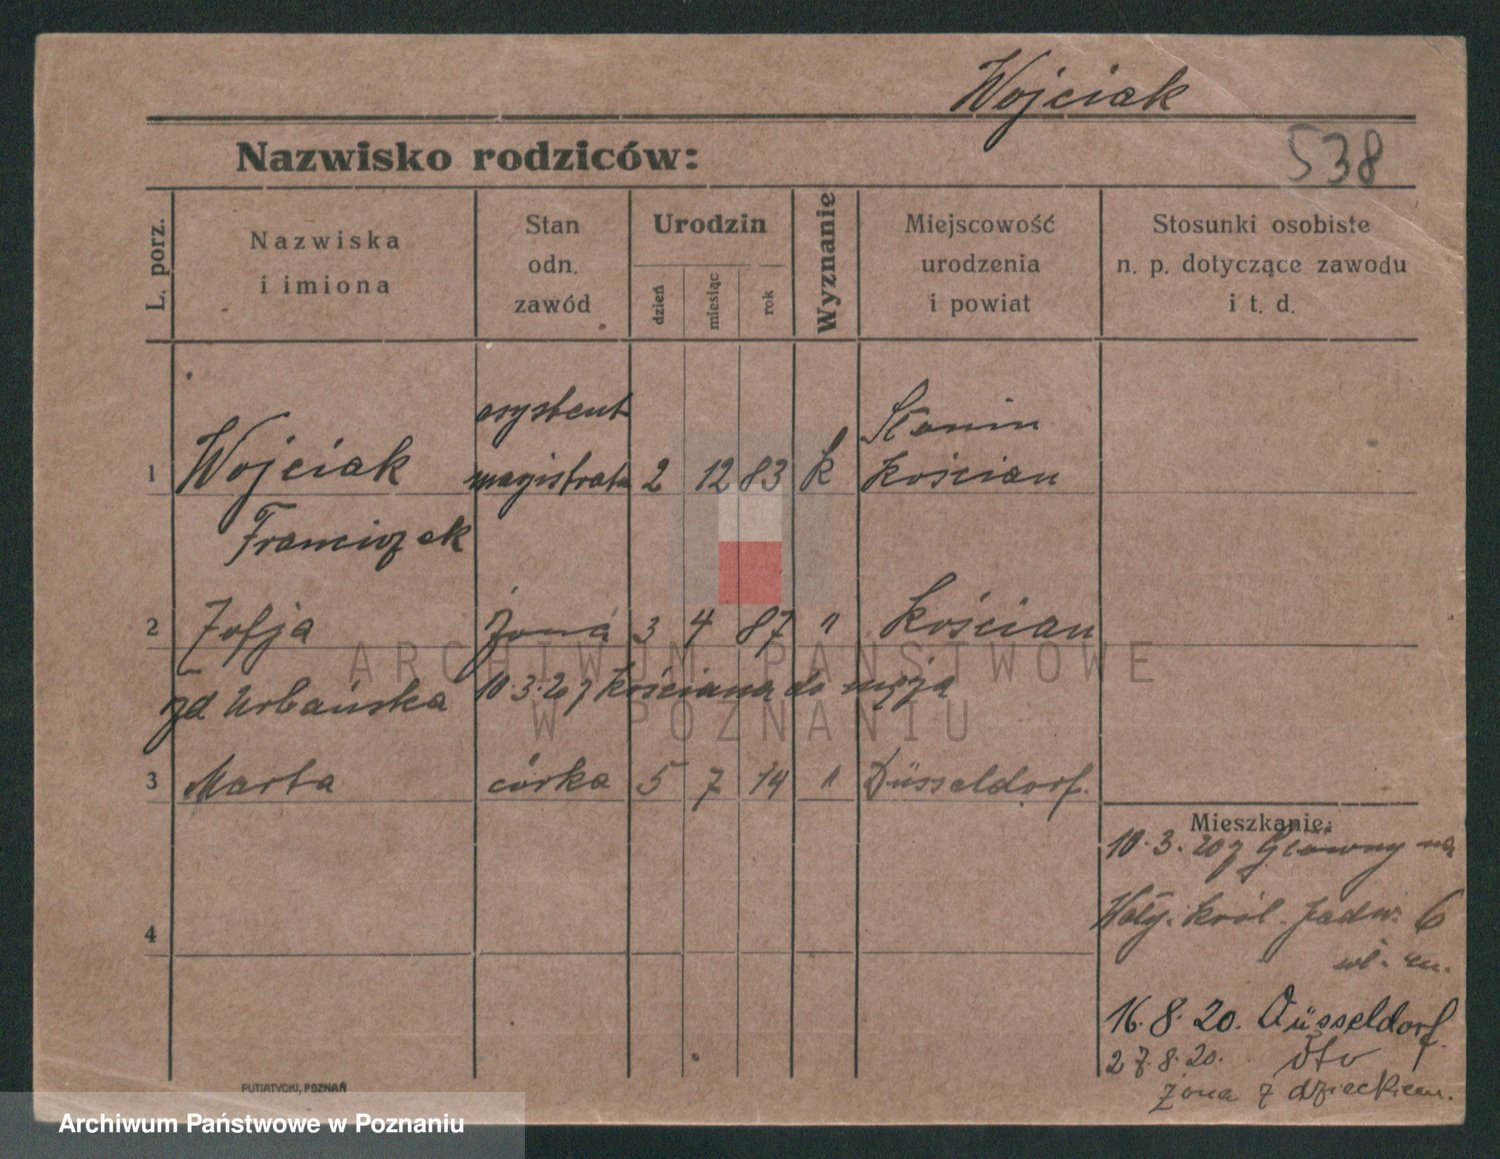 Wojciak
538
Nazwisko rodziców:
L. porz.
Nazwiska
i imiona
Stan
odn.
zawód
Urodzin
dzień
miesiąc
rok
Wyznanie
Miejscowość
urodzenia
i powiat
Stosunki osobiste
n. p. dotyczące zawodu
i t. d.
asystent
Słonin
1 Wojciak magistratu 2 12 83 k Kościan
Franciszek
2 Zofja żona 3 4 87 " Kościan
zd Urbańska 10.3.20 z Kościana do męża
ARCHIWUM PAŃSTWOWE
W POZNANIU
3 Marta córka 5 7 14 " Düsseldorf.
Mieszkanie:
10.3.20 z Główny na
Król. Jadw. 6
4
16.8.20. Düsseldorf.
27.8.20.
żona z dzieckiem.
PUTIATYCKI, POZNAŃ
Archiwum Państwowe w Poznaniu